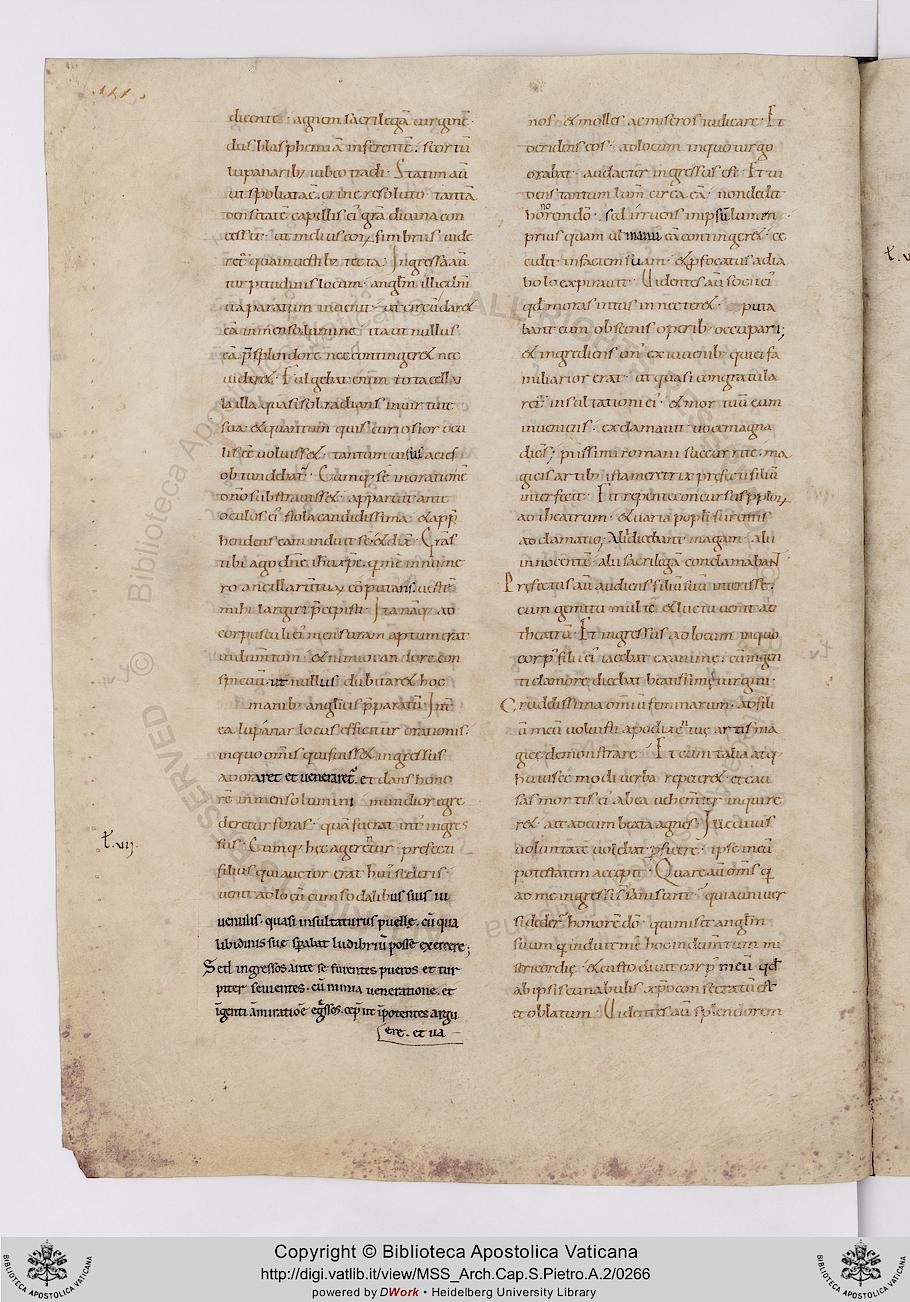 dicente· agnen sacrilegā uirginē·
diis blasphemiā inferente. scortū
lupanarib; iubeo tradi· Statim aū
ut spoliata ē. crine resoluto· tantā
densitatē capillis ei᾽ grā diuina con
cessit· ut melius eoꝝ fimbriis uide
ret᾽ quam uestib; tecta· Ingressa aū
turpitudinis locum· anglm̄ illic dnī
ita paratum inuenit· ut circūdar&
eā immenso lumine· ita ut nullus
eā p̄ splendore nec conting&· nec
uider&· Fulgebat enim tota cellu
la illa quasi sol radians in uirtute
sua· & quantum quis curiosior ocu
lis eē uoluiss&· tantum uisus acies
obtundebat᾽· Cumq; se in orationē
dn̄o substrauiss&· apparuit ante
oculos ei᾽ stola candidissima· & app̄
hendens eam induit se· & dix̄· Gras
tibi ago dn̄e ihu xp̄e· q me in nume
ro ancillarū tuaꝝ cōputans· uestē
mihi largiri p̄cepisti· Ita naq; ad
corpusculi ei᾽ mensuram aptum erat
indumtum· & nimio candore con
spicuū· ut nullus dubitar& hoc
manib; anglicis p̄paratū· Int᾽
ea lupanar locus efficitur orationis·
in quo omis qui fuiss& ingressus
adoraret et ueneraret᾽· et dans hono
rē immenso lumini· mundior egre
deretur foras· quā fuerat int᾽ ingres
sus· Cumq; hęc agerentur· prefecti
filius qui auctor erat hui᾽ sceleris·
uenit ad locū cum sodalibus suis iu
uenulis· quasi insultaturus puelle· cū qua
libidinis sue sp̄abat ludibriū posse exercere;
Sed ingressos ante se furentes pueros et tur
piter seuientes· cū nimia ueneratione· et
īgenti āmiratiōe eg̃ssos· cep̄ ut īpotentes argu
ere· et ua
nos· & molles ac miseros iudicare· Et
deridens eos· ad locum in quo uirgo
orabat· audacter ingressus est· Et ui
dens tantum lum̄ circa eā· non dedit
honorem dō· sed irruens in ip̄sū lumen
prius quam ul᾽ manu eā conting&· ce
cidit in faciem suam· & p̄focatus a dia
bolo expirauit· Uidentes aū socii ei᾽
qd moras intus innecter&· puta
bant eum obscenis operib; occupari;
& ingrediens un᾽ ex iuuenib; qui ei fa
miliarior erat· ut quasi congratula
ret᾽ insultationi ei᾽· & mortuū eum
inueniens· exclamauit uoce magna
dicēs; piissimi romani succurrite· ma
gicis artib; ista meretrix prefecti filiū
interfecit· Fit repente concursus pploꝝ
ad theatrum· & uaria popli furentis
acclamatio; Alii dicebant magam· alii
innocentē· alii sacrilegā conclamabant
Prefectus aū audiens filiū suū interisse·
cum gemitu multo & luctu uenit ad
theatrū· Et ingressus ad locum in quo
corp᾽ filii ei᾽ iacebat exanime· cū ingen
ti clamore dicebat beatissimę uirgini·
Crudelissima om̄iū feminarum· ad fili
ū meū uoluisti apodixen tuę artis ma
gicę demonstrare· Et cum talia atq;
huiuscemodi uerba repeter&· et cau
sas mortis ei᾽ ab ea uehementer inquire
r&· ait ad eum beata agnes· Ille cuius
uoluntatē uolebat p̄ficere· ipse in eū
potestatem accepit· Quare aū om̄s q
ad me ingressi s̄ sani sunt· q̄a uniuer
si deder̄ honorē dō· qui misit anglm̄
suum q induit mē hoc indumtum mi
sericordię· & custodiuit corp᾽ meū qd
ab ip̄sis cunabulis xp̄o consecratū est
et oblatum· Uidentes aū splendorem
ł.vij.
Copyright © Biblioteca Apostolica Vaticana
http://digi.vatlib.it/view/MSS_Arch.Cap.S.Pietro.A.2/0266
powered by DWork • Heidelberg University Library